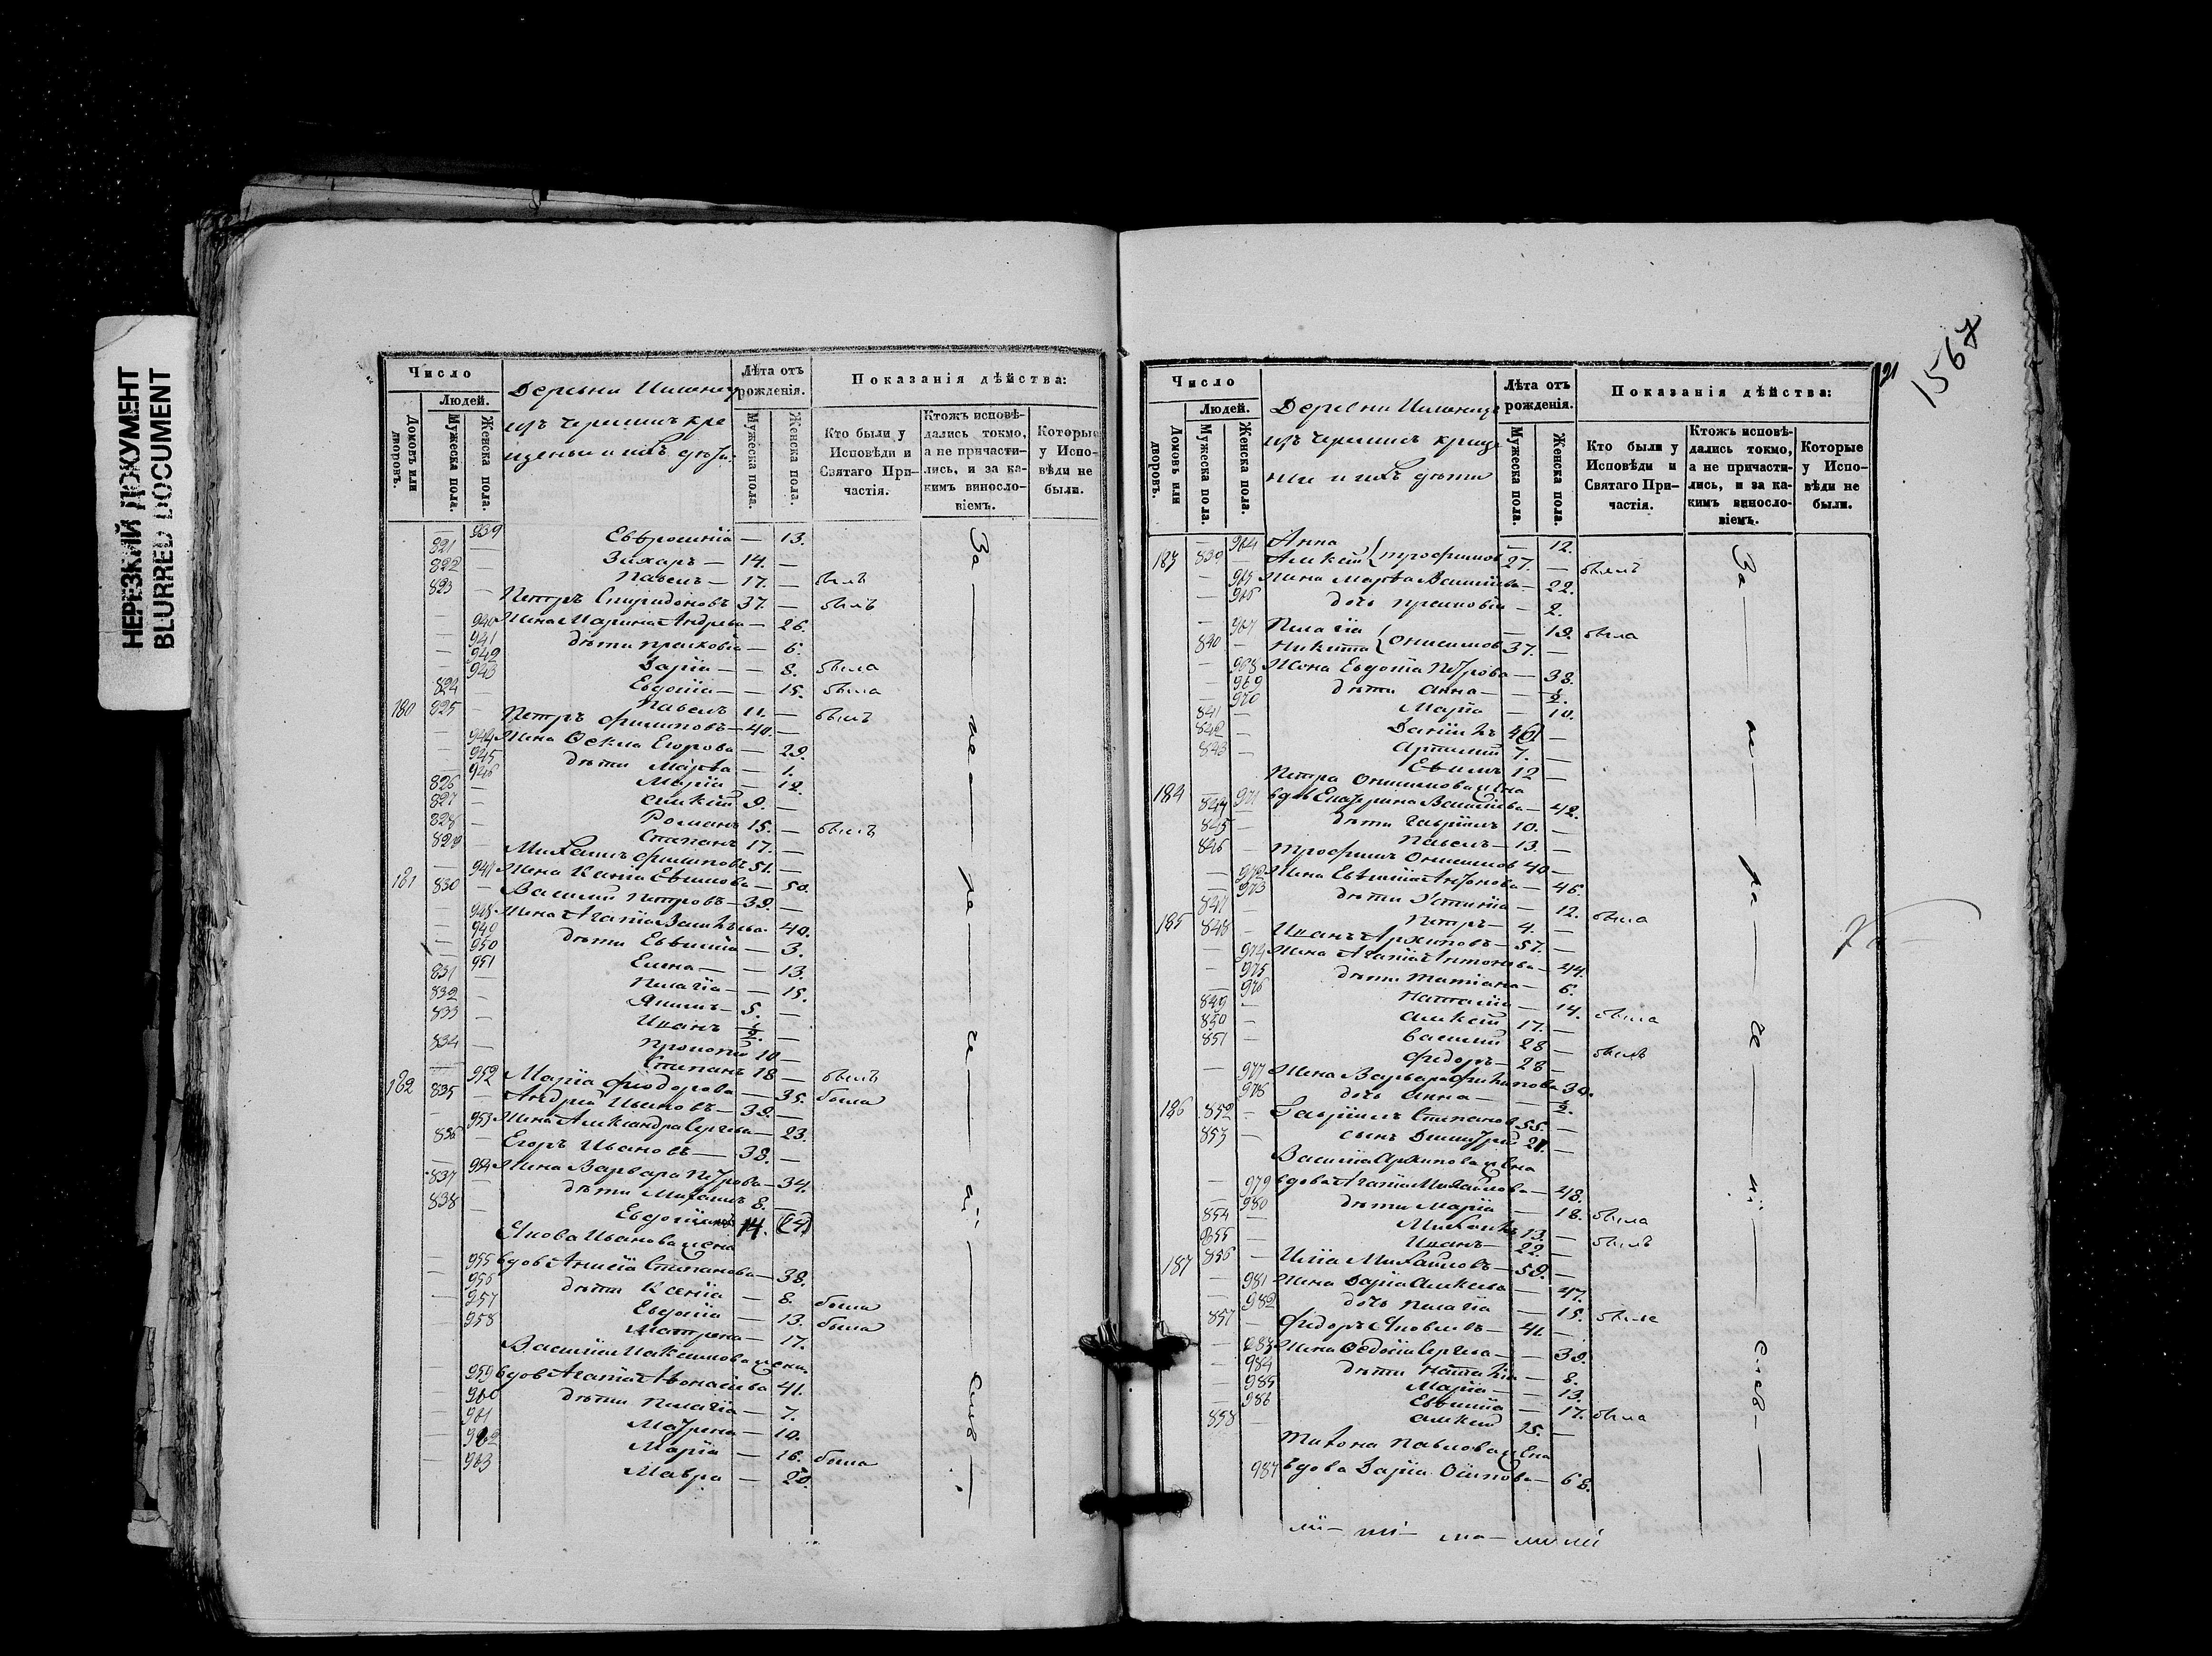 НЕРЕЗКИЙ ДОКУМЕНТ
BLURRED DOCUMENT
Число
Людей.
Домовъ или дворовъ.
Мужеска пола.
Женска пола.
Деревни
изъ черемисъ кре
щеные и ихъ дѣти
Лѣта отъ рожденія.
Мужеска пола.
Женска пола.
Показанія дѣйства:
Кто были у Исповѣди и Святаго При-частія.
Ктожъ исповѣ-дались токмо, а не причасти-лись, и за ка-кимъ винословіемъ.
Которые у Испо-вѣди не были.
939 Евфросинія — 13.
821 — Захаръ — 14. —
822 — Павелъ — 17. — былъ
823 — Петръ Спиридоновъ 37. — былъ
— 940 Жена Марина Андрева — 26.
— 941 дѣти Прасковья — 6.
— 942 Дарія — — 8. была
— 943 Евдокія — — 15. была
824 — Павелъ 11. — былъ
180 825 — Петръ Филиповъ — 40. —
— 944 Жена Ѳекла Егорова — 29.
— 945 дѣти Марѳа — 1.
— 946 Марія — 12.
826 — Алексѣй 9. —
827 — Романъ 15. — былъ
828 — Степанъ 17. —
829 — Михаилъ Филиповъ 51. —
— 947 Жена Евѳимова — 50.
181 830 — Василий Петровъ — 39. —
— 948 Жена Агафія Васильева 40.
— 949 дѣти Евѳимія — 3.
— 950 Елена — — 13.
— 951 Пелагія — — 15.
831 — Якимъ — 5. —
832 — Иванъ ½. —
833 — Прокопій 10 —
834 — Степанъ 18 — былъ
— 952 Марія Феодорова — 35. была
182 835 — Андрей Ивановъ — 39. —
— 953 Жена Александра Сергѣева — 23.
836 — Егоръ Ивановъ — 38. —
— 954 Жена Варвара Петрова — 34.
837 — дѣти Михаилъ 8. —
838 — 14.
Якова Иванова жена
— 955 вдов Анисія Степанова — 38.
— 956 дѣти Ксенія — 8. была
— 957 Евдокія — 13. была
— 958 Матрена — 17.
Василія Максимова жена
959 вдов Агафія Аѳонасьева 41.
960 дѣти Пелагія — 7.
961 Матрена — 10.
962 Марія — 16. была
963 Мавра — 20.
За — не — ра — че — ні — емъ
Число
Людей.
Домовъ или дворовъ.
Мужеска пола.
Женска пола.
Деревни
изъ черемисъ креще
ные и ихъ дѣти
Лѣта отъ рожденія.
Мужеска пола.
Женска пола.
Показанія дѣйства:
Кто были у Исповѣди и Святаго При-частія.
Ктожъ исповѣ-дались токмо, а не причасти-лись, и за ка-кимъ винословіемъ.
Которые у Испо-вѣди не были.
1567
— 964 Анна — 12.
183 839 — Алексѣй Трофимов 27. — былъ
— 965 Жена Марѳа Васильева — 22.
— 966 дочь Прасковья — 2.
— 967 Пелагія — 19. была
840 — Никита Онисимов 37. —
— 968 Жена Евдокія Петрова — 38.
— 969 дѣти Анна — — ½.
— 970 Марія — 10.
841 — Данилъ —
842 — Артемій 7. —
843 — Евѳимъ 12 —
Петра Онисимова жена
184 — 971 вдов Екатерина Васильева — 42.
844 — дѣти Гавріилъ 10. —
845 — Павелъ — 13. —
846 — Трофимъ Онисимов 40 —
— 972 Жена Евѳимія Антонова — 46.
— 973 дѣти Устинія — 12. была
847 — Петръ — 4. —
185 848 — Иванъ Архиповъ — 57. —
— 974 Жена Агафія Антонова — 44.
— 975 дѣти Татіана — 6.
— 976 Наталія — 14. была
849 — Алексѣй 17. —
850 — Василий 28 — былъ
851 — Федоръ — 28 —
— 977 Жена Варвара Филипова 30.
— 978 дочь Анна — — ½.
186 852 — Гавріилъ Степанов 55. —
853 — сынъ Димитрій 21. —
Василія Архипова жена
— 979 вдова Агафія Михайлова — 48.
— 980 дѣти Марія — 18. была
854 — Михаилъ 13. — былъ
855 — Иванъ — 22. —
187 856 — Илія Михайловъ — 59. —
— 981 Жена Дарія Алексѣева — 47.
— 982 дочь Пелагія — 15. была
857 — Федоръ Яковлевъ — 41. —
— 983 Жена Ѳедосія Сергѣева — 39.
— 984 дѣти Наталія — 8.
— 985 Марія — — 13.
— 986 Евѳимія — 17. была
858 — Алексѣй 25. —
Тихона Павлова жена
987 вдова Дарія Осипова — 68.
За — не — ра — че — ні — емъ